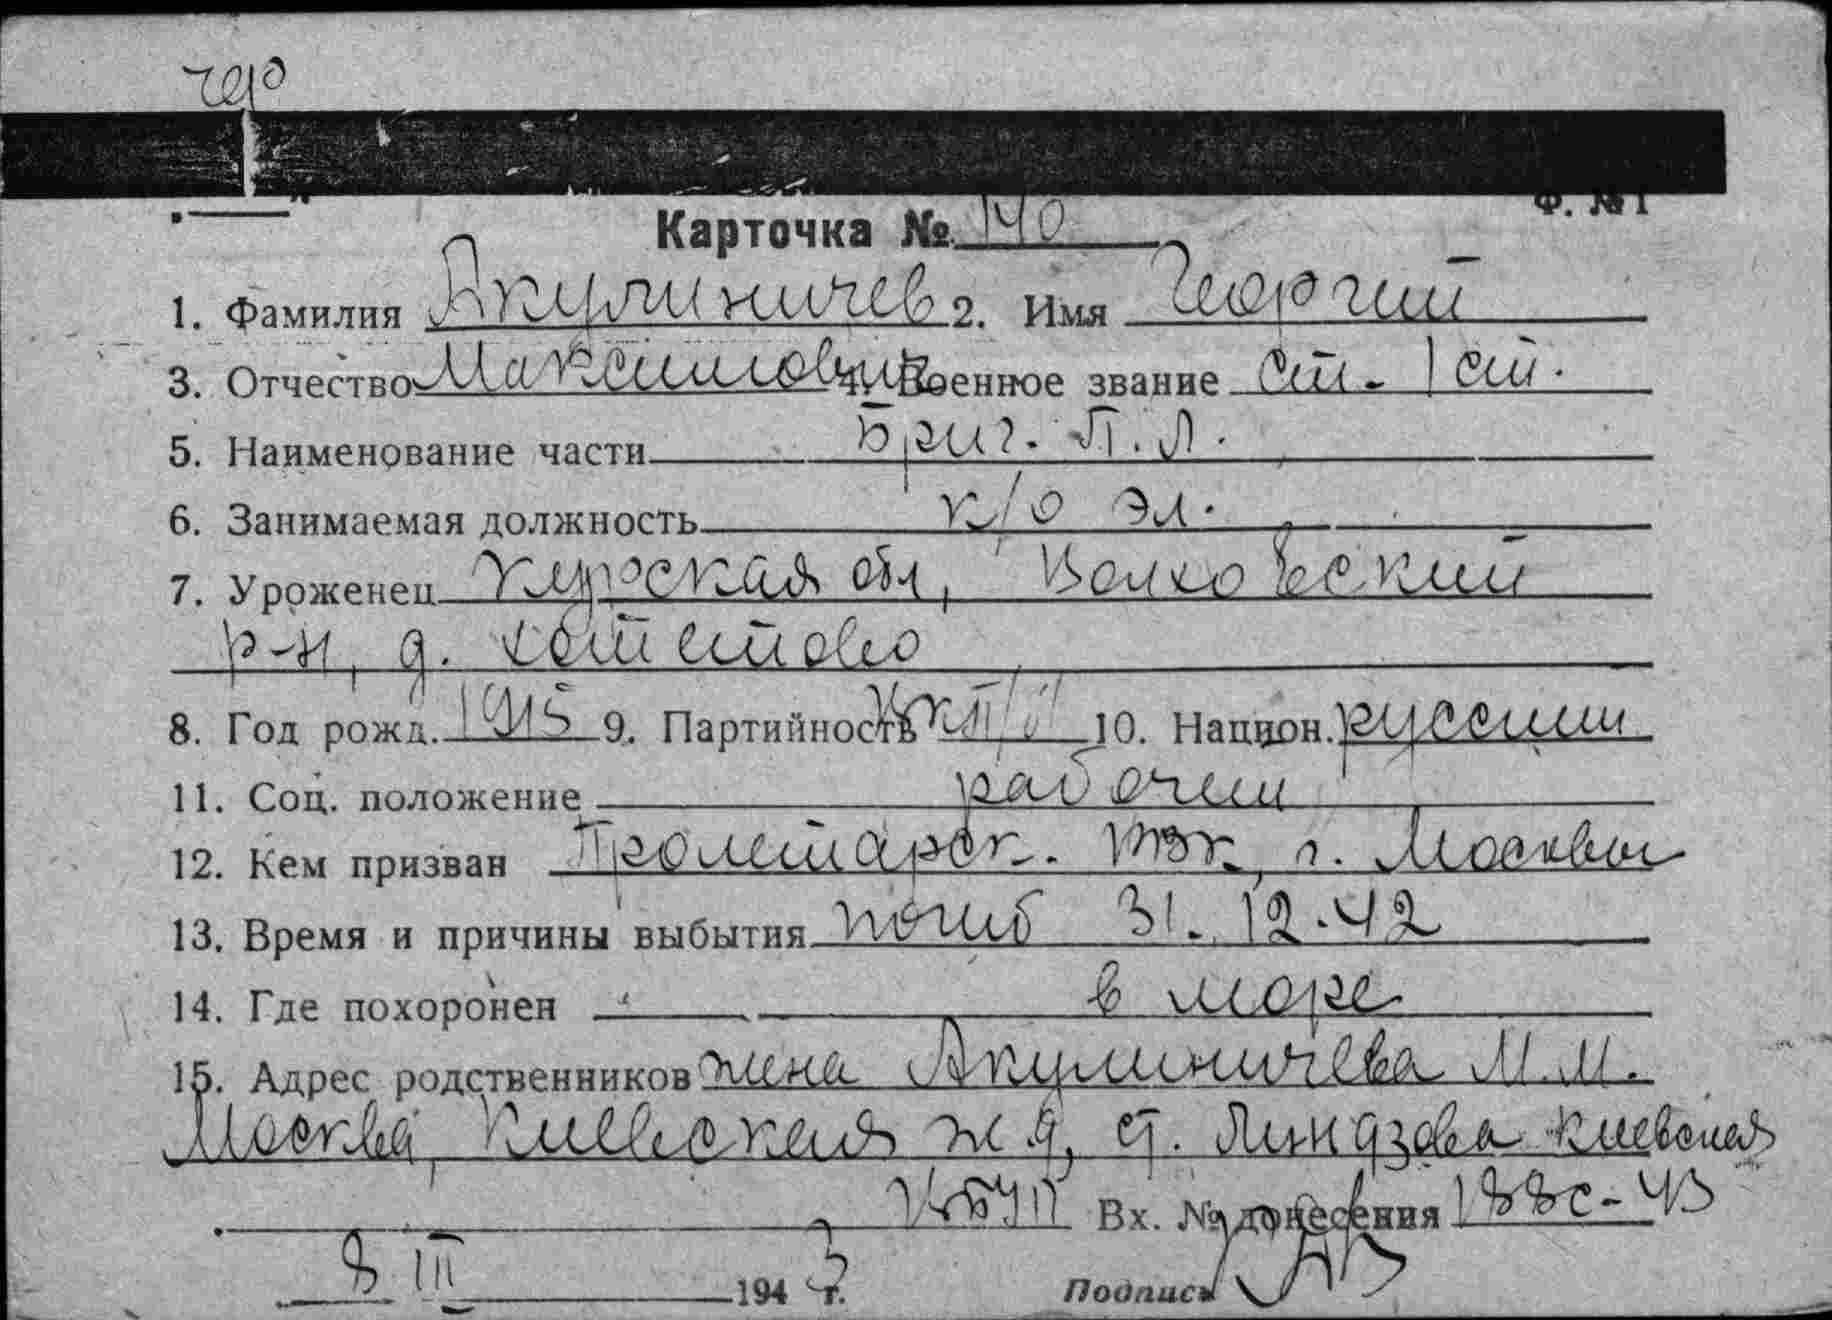 чер
Ф. № 1
Карточка № 140
1. Фамилия Акулиничев 2. Имя Георгий
3. Отчество Максимович 4. Военное звание ст. 1 ст.
5. Наименование части Бриг. П.Л.
6. Занимаемая должность к/о эл.
7. Уроженец Курская обл, Волховский
р-н, д. хотетово
8. Год рожд. 1915 9. Партийность 10. Национ. русский
11. Соц. положение рабочий
12. Кем призван Пролетарск. г. Москвы
13. Время и причины выбытия погиб 31.12.42
14. Где похоронен в море
15. Адрес родственников жена Акулиничева М.М.
Москва, Киевская ж д, ст. Линдзова Киевская
Вх. № донесения 188с-43
8 III 1943 г. Подпись